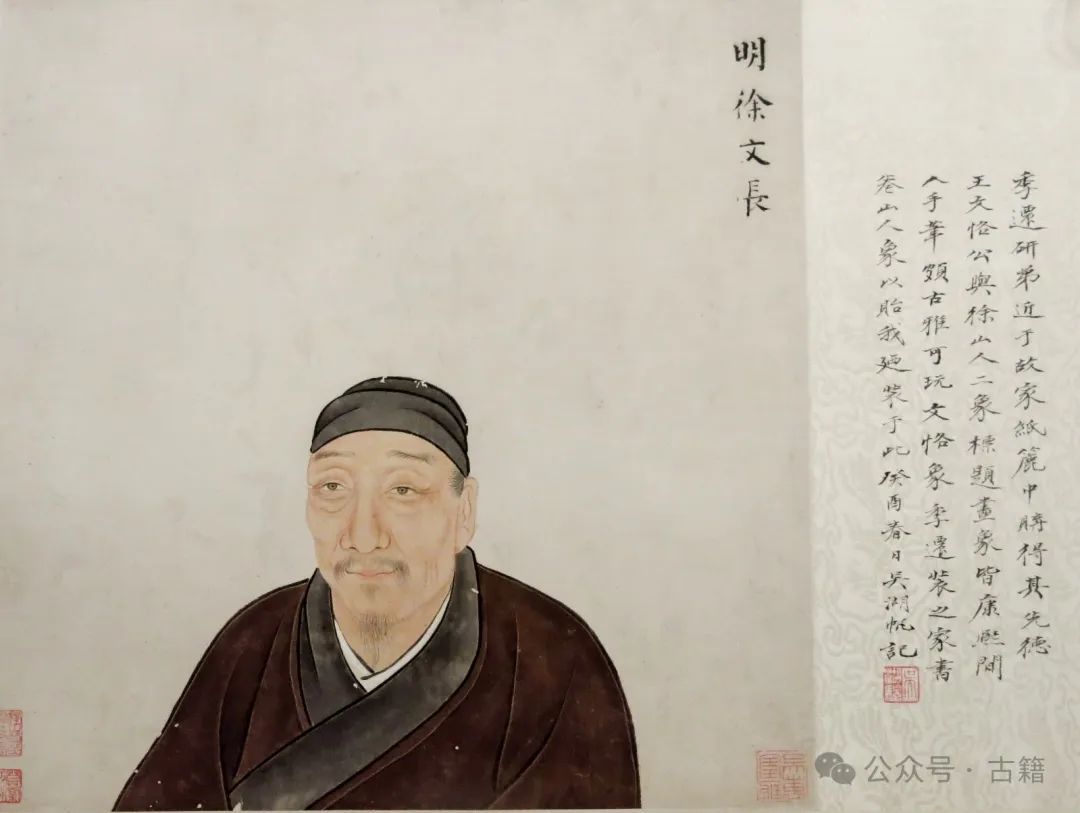 季遷研弟近于故家紙簏中賸得其先德
王文恪公與徐山人二象標題畫象皆康熙間
人手筆頗古雅可玩文恪象季遷裝之家書
卷山人象以貽我廼裝于此癸酉春日吴湖帆記
明徐文長
公众号 · 古籍